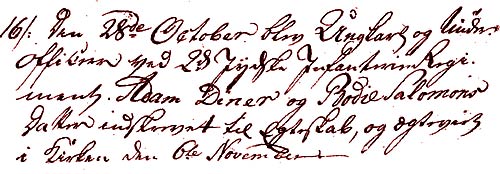 16/: Den 28de October blev Ungkarl og Under
officeer ved 2d Jydske Infanterie Regi-
ment. Adam Diner og Bodil Salomons
Datter indskrevet til Egteskab, og ægteviet
i Kirken den 6te November